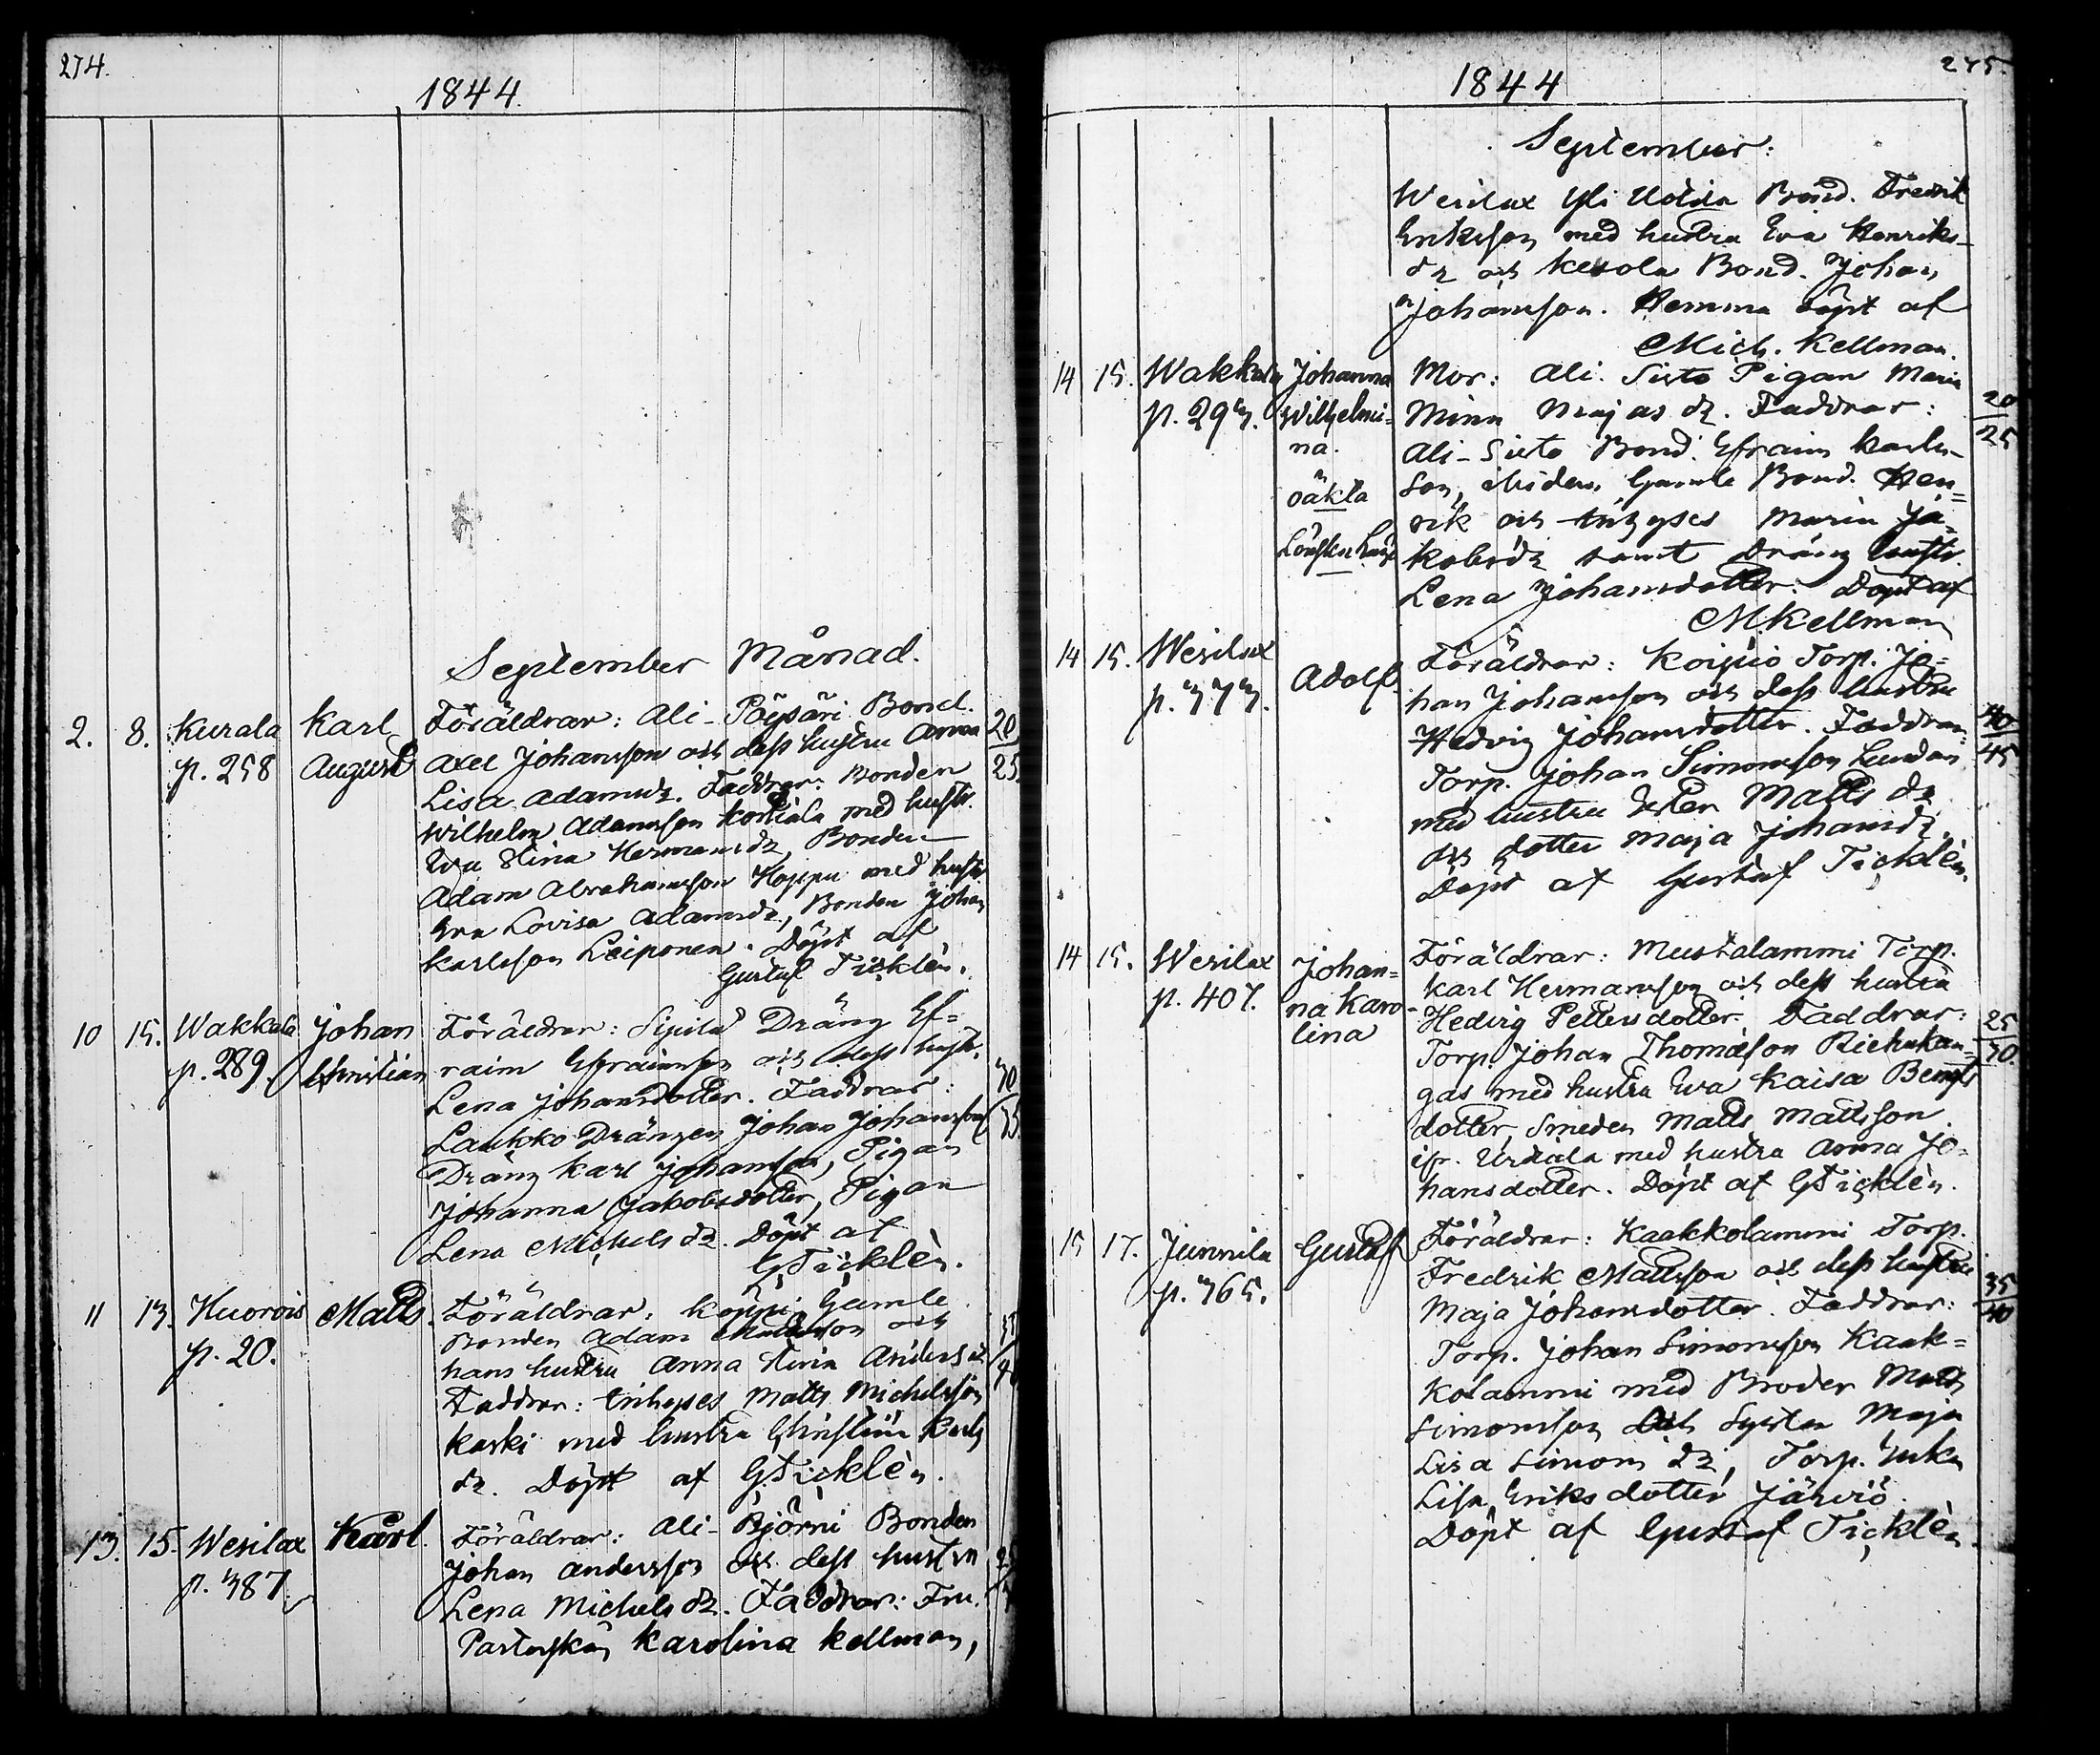 274.
1844.
September Månad.
2. 8. Kurala Karl Föräldrar: Ali-Päipäri Bond. 20
p. 258 August Axel Johansson och dess hustru Anna 25
Lisa Adamsdr. Faddrar: Bonden
Wilhelm Adamsson Kortiala med hustr.
Eva Stina Hermansdr, Bonden
Adam Abrahamsson Hoppu med hustr
Eva Lovisa Adamsdr, Bonden Johan
Karlsson Leiponen. Döpt af
Gustaf Ticklèn.
10 15. Wakkala Johan Föräldrar: Sipilä Dräng Ef=
p. 289 Christian raim Efraimson och dess hustr. 30
Lena Johansdotter. Faddrar: 35
Laukko Drängen Johan Johansson
Dräng Karl Johansson, Pigan
Johanna Jakobsdotter, Pigan
Lena Michelsdr. Döpt af
G Ticklèn.
11 13. Kuorois Matts. Föräldrar: Koppi Gamle
p. 20. Bonden Adam och
hans hustru Anna Stina Andersdr.
Faddrar: Inhyses Matts Michelsson
Kaski med hustru Christina Karls
dr. Döpt af G. Ticklèn.
13. 15. Wesilax Karl. Föräldrar: Ali-Björni Bonden
p. 387 Johan Andersson och dess hustru
Lena Michelsdr. Faddrar: Fru.
Pastorskan Karolina Kellman,
275.
1844
September:
Wesilax Yli Uotila Bond. Fredrik
Eriksson med hustru Eva Henriks-
dr och Kesola Bond. Johan
Johansson. Hemma döpt af
Mich. Kellman.
14 15. Wakkala Johanna Mor: Ali. Sisto Pigan Maria
p. 293. Wilhelmi= Minna Majasdr. Faddrar: 20
na. Ali-Sisto Bond. Efraim Karls- 25
oäkta son, ibidem, Gamle Bond. Hen=
rik och Inhyses Maria Ja=
kobsdr samt Dräng hustr.
Lena Johansdotter. Döpt af
MKellman
14 15. Wesilax Adolf. Föräldrar: Koipio Torp. Jo=
p. 373. han Johansson och dess hustru
Hedvig Johansdotter. Faddrar: 40
Torp. Johan Simonsson 45
med hustru Ester Matts dr
och dotter Maja Johansdr.
Döpt af Gustaf Ticklèn.
14 15. Wesilax Johan= Föräldrar: Mustalammi Torp.
p. 407. na Karo- Karl Hermansson och dess hustru
lina Hedvig Pettersdotter. Faddrar: 25
Torp. Johan Thomasson Riehukan= 30.
gas med hustru Eva Kaisa Bengts
dotter, Smeden Matts Mattsson
ifr. Urdiala med hustru Anna Jo=
hansdotter. Döpt af G Ticklèn.
15 17. Junnila Gustaf Föräldrar: Kaakkolammi Torp.
p. 365. Fredrik Mattsson och dess hustru
Maja Johansdotter. Faddrar: 35
Torp. Johan Simonsson Kaak= 40
kolammi med Broder Matts
Simonsson och Syster Maja
Lisa Simonsdr, Torp. Enka
Lisa Eriksdotter Järviö.
Döpt af Gustaf Ticklèn.